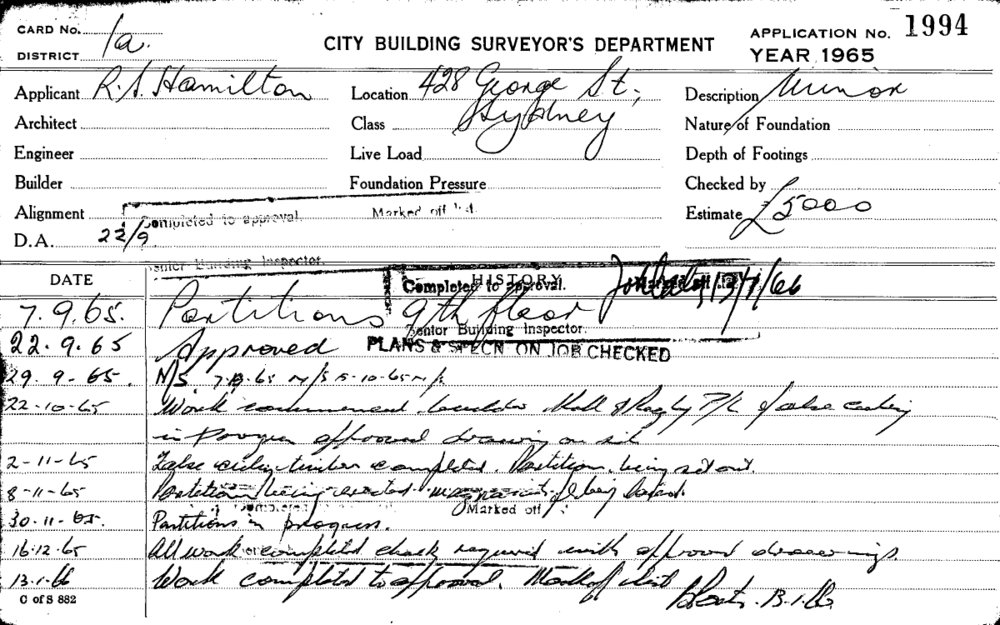 CARD No. 1a.
DISTRICT
CITY BUILDING SURVEYOR'S DEPARTMENT
APPLICATION No. 1994
YEAR 1965
Applicant R.S. Hamilton
Location 428 George St.,
Sydney
Description Minor
Architect
Class
Nature of Foundation
Engineer
Live Load
Depth of Footings
Builder
Foundation Pressure
Checked by
Alignment
Completed to approval.
Marked off list.
Estimate £5000
D.A. 22/9
Senior Building Inspector.
DATE
HISTORY
Completed to approval.
13/1/66
7.9.65. Partitions 9th floor
Senior Building Inspector.
22.9.65 Approved
PLANS & SPECN ON JOB CHECKED
29.9.65. N/S 5-10-65 N/S
22-10-65 Work commenced builder Hall & false ceiling
in progress approved drawing on
2-11-65 False ceiling timber completed. Partition being set out.
8-11-65 Partitions being erected
Marked off
30.11.65. Partitions in progress.
16.12.65 All work completed check required with approved drawings
13.1.66 Work completed to approval. Mark off list
13.1.66
C of S 882